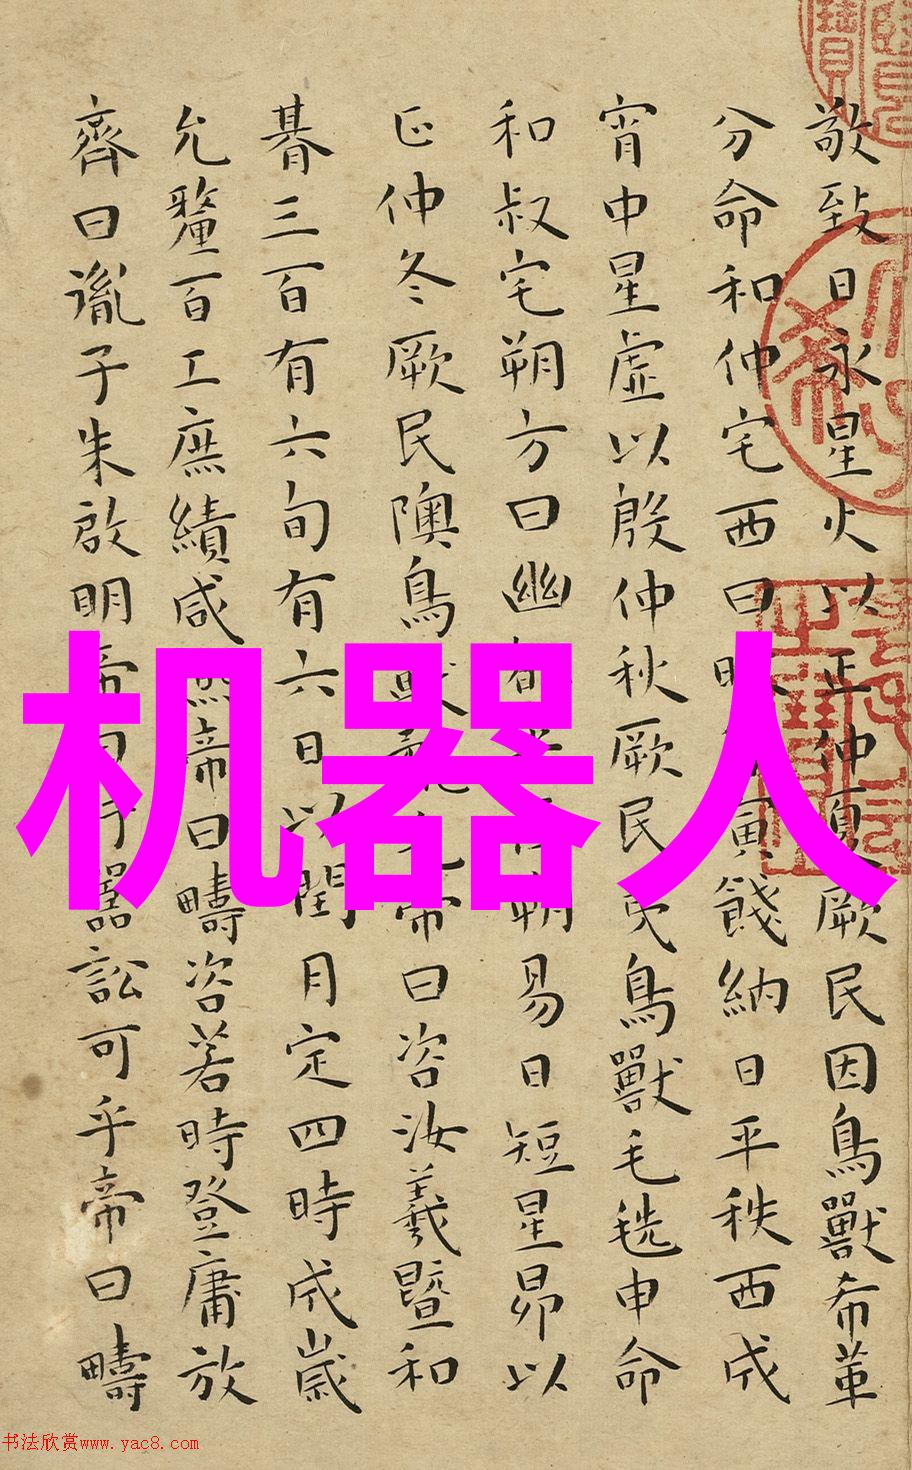 敬致日永星火以正仲夏厥民因鳥獸希革
分命和仲宅西曰寅餞納日平秩西成
宵中星虛以殷仲秋厥民夷鳥獸毛毨申命
和叔宅朔方曰幽朔易日短星昴以
正仲冬厥民隩鳥帝曰咨汝羲暨和
朞三百有六旬有六日以閏月定四時成歲
允釐百工庶績咸熙帝曰疇咨若時登庸放
齊曰胤子朱啟明帝曰吁嚚訟可乎帝曰疇
机器人
书法欣赏www.yac8.com